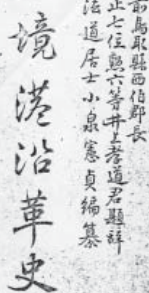 前鳥取縣西伯郡長
正七位勲六等井上孝道君題辞
法道居士小泉憲貞編纂
境港沿革史